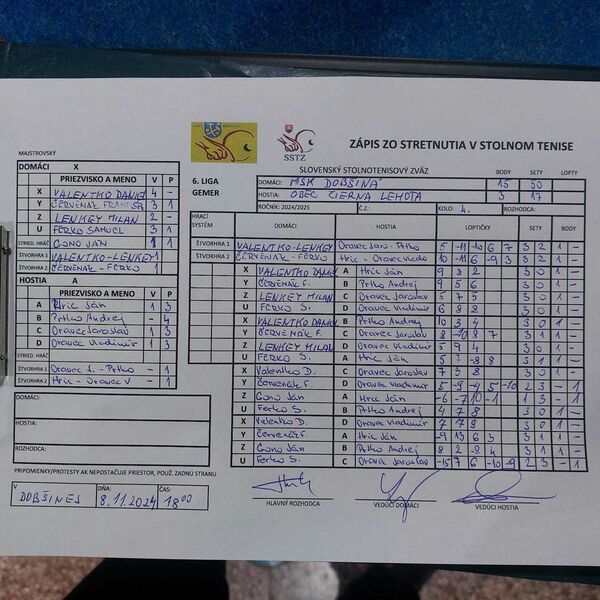 SSTZ
ZÁPIS ZO STRETNUTIA V STOLNOM TENISE
SLOVENSKÝ STOLNOTENISOVÝ ZVÄZ
MAJSTROVSKÝ
DOMÁCI X
PRIEZVISKO A MENO V P
X VALENTKO DANIEL 4 -
Y ČERVENÁK 3 1
Z LENKEY MILAN 2 -
U FERKO SAMUEL 3 1
STRIED. HRÁČ GONO JÁN 1 1
ŠTVORHRA 1 VALENTKO-LENKEY 1
ŠTVORHRA 2 ČERVENÁK - FERKO 1
HOSTIA A
PRIEZVISKO A MENO V P
A Hric Ján 1 3
B Petko Andrej - 4
C Oravec Jaroslav 1 3
D Oravec Vladimír 1 3
STRIED. HRÁČ
ŠTVORHRA 1 Oravec J. - Petko - 1
ŠTVORHRA 2 Hric - Oravec V - 1
DOMÁCI:
HOSTIA:
ROZHODCA:
PRIPOMIENKY/PROTESTY AK NEPOSTAČUJE PRIESTOR, POUŽ. ZADNÚ STRANU
V DOBŠINEJ DŇA: 8.11.2024 ČAS: 18 00
6. LIGA
GEMER
BODY SETY LOPTY
DOMÁCI: MŠK DOBŠINÁ 15 50
HOSTIA: OBEC ČIERNA LEHOTA 3 17
ROČNÍK: 2024/2025 Č.Z.: KOLO: 4. ROZHODCA:
HRACÍ SYSTÉM DOMÁCI HOSTIA LOPTIČKY SETY BODY
ŠTVORHRA 1 VALENTKO-LENKEY Oravec Jaro - Petko 5 -11 -10 6 7 3 2 1 -
ŠTVORHRA 2 ČERVENÁK - FERKO 10 -11 6 -9 3 3 2 1 -
X VALENTKO DANIEL A Hric Ján 9 8 2 3 0 1 -
Y ČERVENÁK F. B Petko Andrej 9 5 6 3 0 1 -
Z LENKEY MILAN C Oravec Jaroslav 5 7 5 3 0 1 -
U FERKO S. D Oravec Vladimír 6 8 8 3 0 1 -
X VALENTKO DANIEL B Petko Andrej 10 3 4 3 0 1 -
Y ČERVENÁK F. C Oravec Jaroslav 8 -10 8 7 3 1 1 -
Z LENKEY MILAN D Oravec Vladimír 5 9 4 3 0 1 -
U FERKO S. A Hric Ján 5 7 -8 8 3 1 1 -
X Valentko D. C Oravec Jaroslav 7 3 8 3 0 1 -
Y ČERVENÁK F. D Oravec Vladimír 5 -9 -4 5 -10 2 3 - 1
Z Gono Ján A Hric Ján -6 -7 10 -1 1 3 - 1
U Ferko S. B Petko Andrej 4 7 8 3 0 1 -
X Valentko D. D Oravec Vladimír 7 7 8 3 0 1 -
Y ČERVENÁK F. A Hric Ján -9 13 6 3 3 1 1 -
Z Gono Ján B Petko Andrej 8 2 -8 4 3 1 1 -
U Ferko S. C Oravec Jaroslav -15 7 6 -10 -9 2 3 - 1
HLAVNÝ ROZHODCA VEDÚCI DOMÁCI VEDÚCI HOSTIA